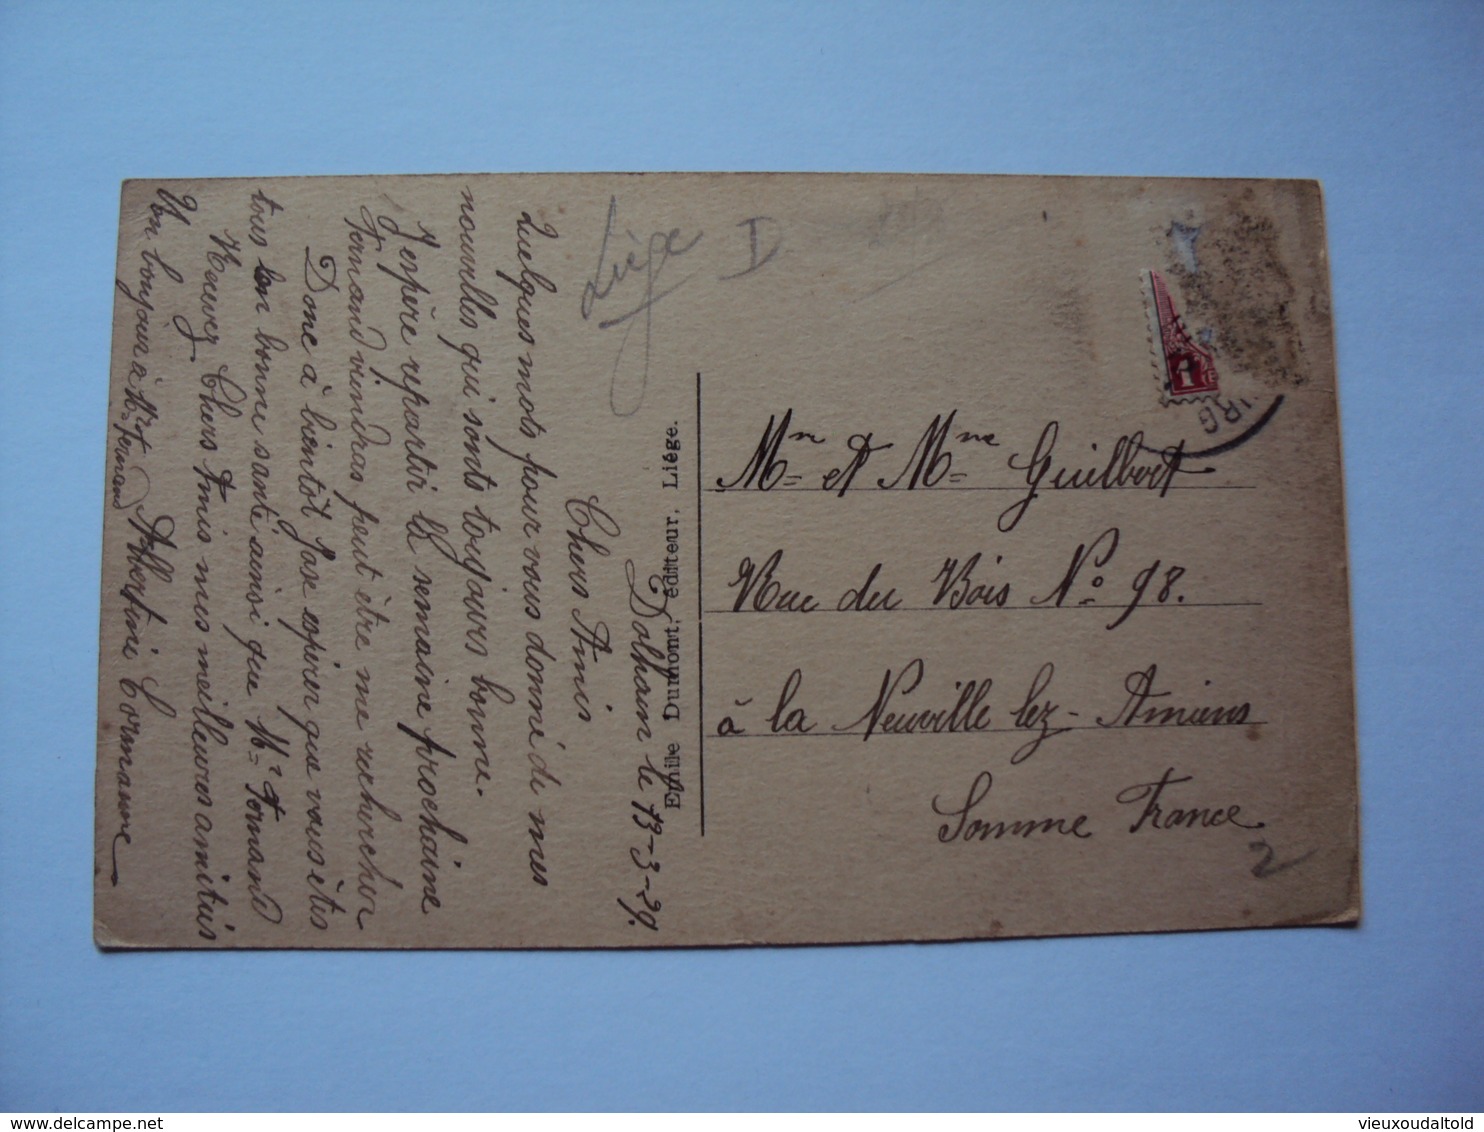 Liège D
Dolhain le 13-3-29.
Chers Amis
Quelques mots pour vous donné de mes
nouvelles qui sonts toujours bonne.
J'espère repartir la semaine prochaine
Fernand viendras peut être me rechercher
Donc à bientôt j'ose espérer que vous êtes
tous en bonne santé ainsi que Mr Fernand
Recevez Chers Amis mes meilleures amitiés
Un bonjour à Mr et Mme Fernand Albertine Cormanne
Emile Dumont, éditeur, Liége.
1
URG
Mr et Mme Guilbert
Rue du Bois No 98.
à la Neuville lez-Amiens
Somme France
2
vieuxoudaltold